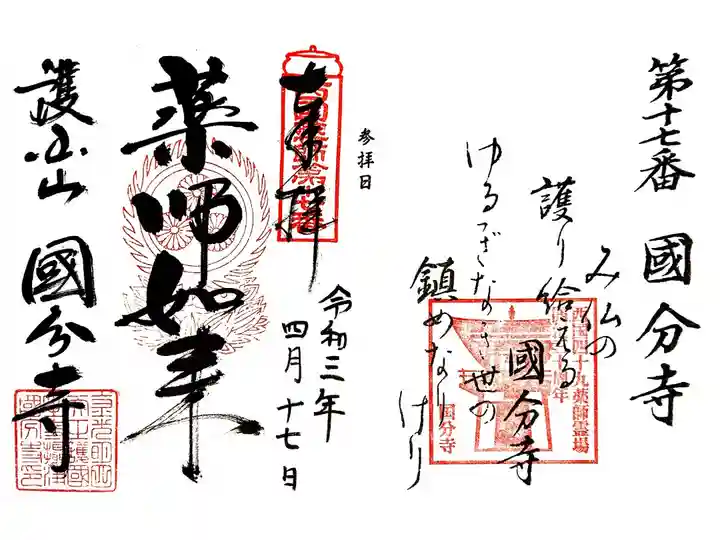 第十七番 國分寺
み仏の
護り給える
國分寺
ゆるぎなき世の
鎮めなり
けり
西国四十九薬師霊場
国分寺
参拝日
令和三年
四月十七日
奉拝
薬師如来
護国山 國分寺